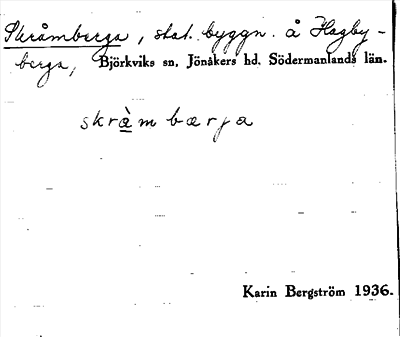 Skråmberga, stat. byggn. å Hagby-
berga, Björkviks sn. Jönåkers hd. Södermanlands län.
skràmbærja
Karin Bergström 1936.